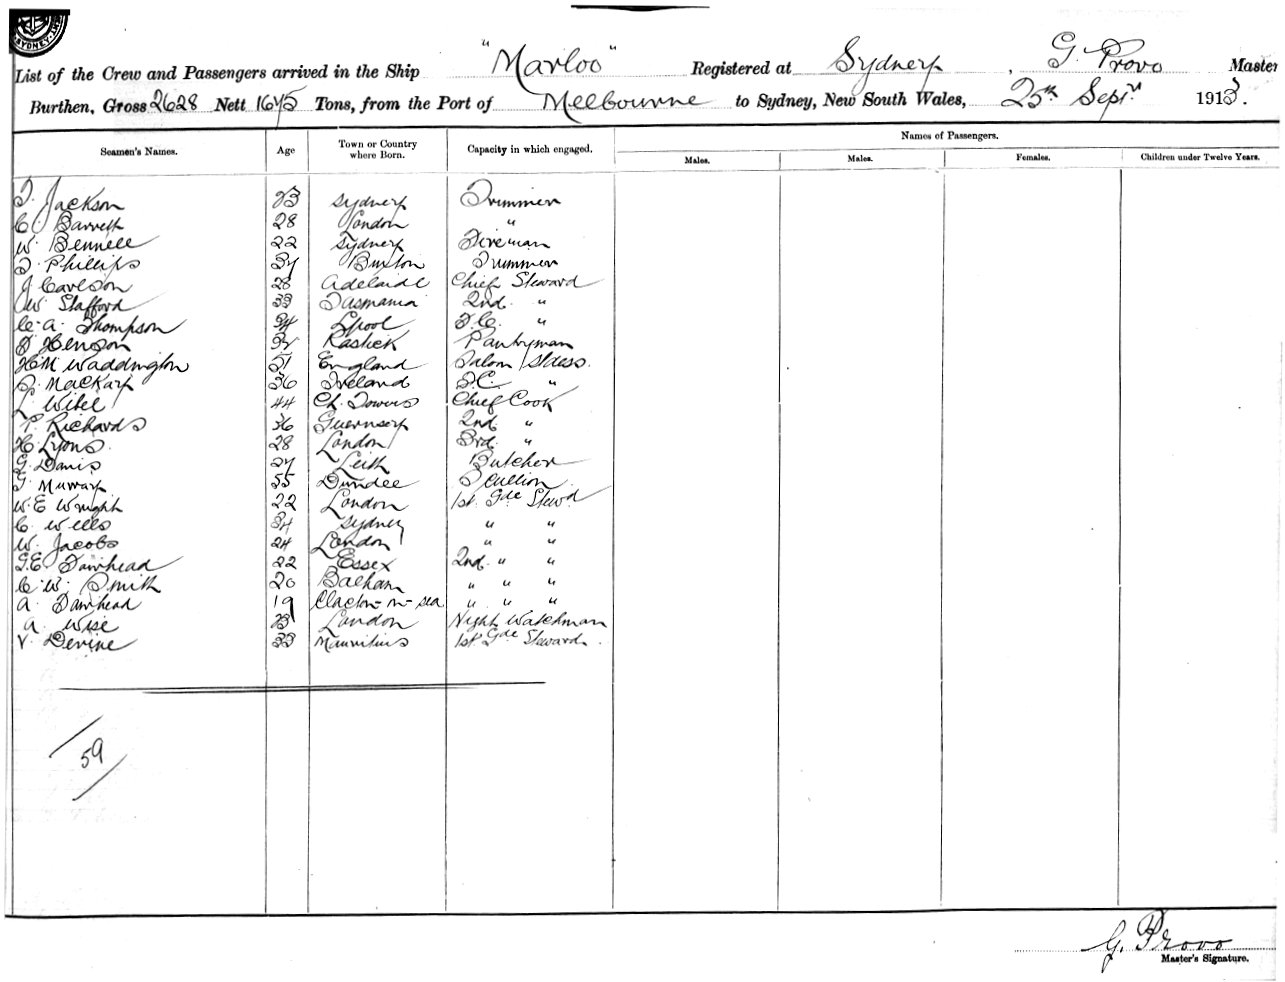 SYDNEY
List of the Crew and Passengers arrived in the Ship "Marloo" Registered at Sydney, G. Provo Master
Burthen, Gross 2628 Nett 1675 Tons, from the Port of Melbourne to Sydney, New South Wales, 25th Sept 1913.
Seamen's Names. Age Town or Country where Born. Capacity in which engaged. Names of Passengers.
Males. Males. Females. Children under Twelve Years.
Jackson 23 Sydney Trimmer
C. Barrett 28 London "
W. Bennell 22 Sydney Fireman
Phillips Buxton Trimmer
J Carlson 28 Adelaide Chief Steward
W. Stafford 33 Tasmania 2nd "
C. A. Thompson 34 L'pool "
Henson Pantryman
H M Waddington 51 England Saloon Stdess.
Mackay 36 Ireland "
L. Wibel 44 Ch. Towers Chief Cook
Richards 36 Guernsey 2nd "
H Lyons 28 London 3rd "
G. Davis 27 Leith Butcher
Murray 55 Dundee Scullion
W. E Wright 22 London 1st Gde Stewd
C. Wells 34 Sydney " "
W. Jacobs 24 London " "
G. E. Fairhead 22 Essex 2nd " "
C. W. Smith 20 Balham " " "
A. Fairhead 19 Clacton-on-sea " " "
A. Wise 23 London Night Watchman
V. Devine 33 Mauritius 1st Gde Steward.
59
G. Provo
Master's Signature.